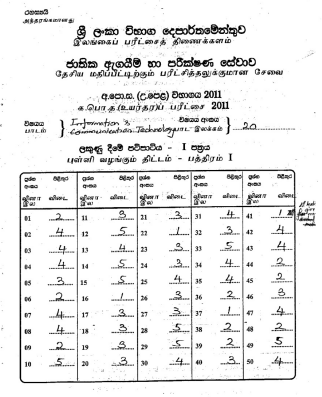 රහස්‍යයි
அந்தரங்கமானது
ශ්‍රී ලංකා විභාග දෙපාර්තමේන්තුව
இலங்கைப் பரீட்சைத் திணைக்களம்
ජාතික ඇගයීම් හා පරීක්ෂණ සේවාව
தேசிய மதிப்பீட்டிற்கும் பரீட்சித்தலுக்குமான சேவை
අ.පො.ස. (උ.පෙළ) විභාගය 2011
க.பொ.த (உயர்தர)ப் பரீட்சை 2011
විෂයය පාடம் Information & Communication Technology විෂයය අංකය பாட இலக்கம் 20
ලකුණු දීමේ පටිපාටිය - I පත්‍රය
புள்ளி வழங்கும் திட்டம் - பத்திரம் I
ප්‍රශ්න අංකය පිළිතුර ප්‍රශ්න අංකය පිළිතුර ප්‍රශ්න අංකය පිළිතුර ප්‍රශ්න අංකය පිළිතුර ප්‍රශ්න අංකය පිළිතුර
வினா இல விடை வினா இல விடை வினா இல விடை வினா இல விடை வினா இல விடை
01 2 11 3 21 3 31 4 41 1
02 4 12 5 22 1 32 3 42 4
03 4 13 4 23 3 33 5 43 4
04 4 14 5 24 3 34 4 44 2
05 3 15 5 25 4 35 4 45 2
06 2 16 1 26 3 36 2 46 3
07 4 17 3 27 3 37 1 47 4
08 4 18 3 28 5 38 2 48 2
09 2 19 3 29 5 39 2 49 5
10 5 20 3 30 4 40 3 50 4